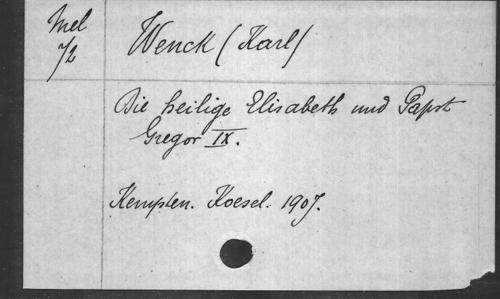 Mel
72
Wenck (Karl)
Die heilige Elisabeth und Papst
Gregor IX.
Kempten. Koesel. 1907.